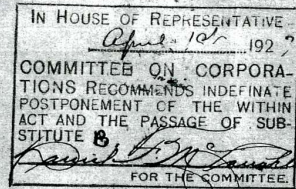 IN HOUSE OF REPRESENTATIVE
April 1st 192
COMMITTEE ON CORPORA-
TIONS RECOMMENDS INDEFINATE
POSTPONEMENT OF THE WITHIN
ACT AND THE PASSAGE OF SUB-
STITUTE B
FOR THE COMMITTEE.